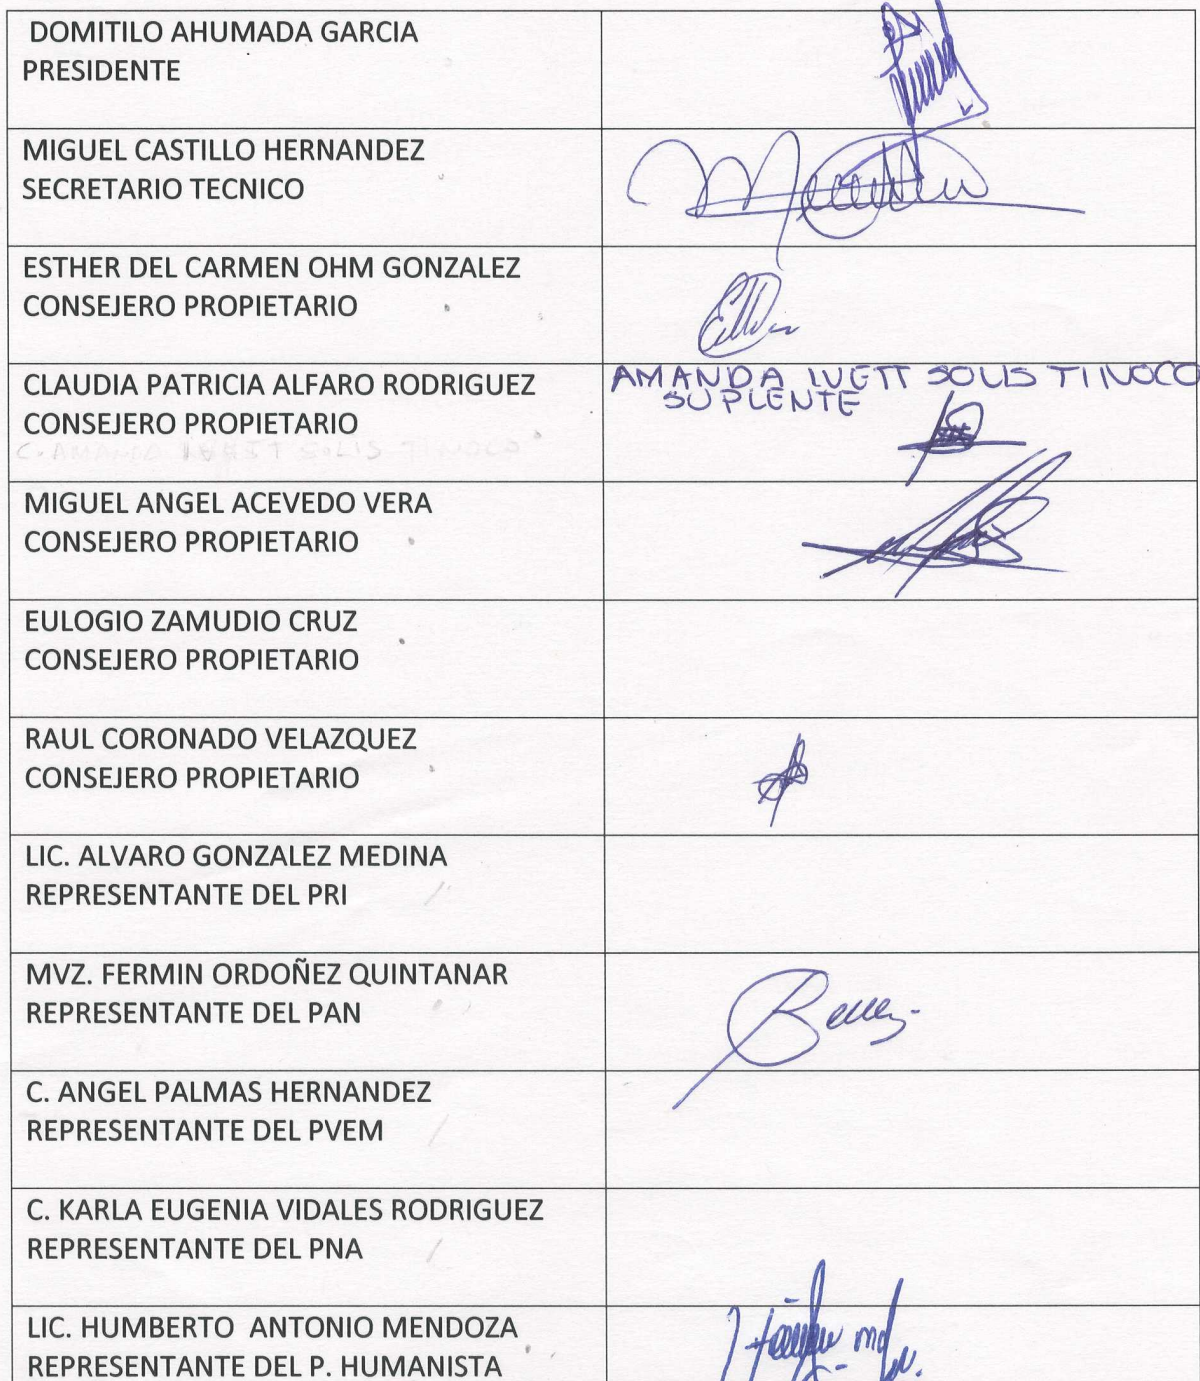 DOMITILO AHUMADA GARCIA
PRESIDENTE
MIGUEL CASTILLO HERNANDEZ
SECRETARIO TECNICO
ESTHER DEL CARMEN OHM GONZALEZ
CONSEJERO PROPIETARIO
CLAUDIA PATRICIA ALFARO RODRIGUEZ
CONSEJERO PROPIETARIO
C. AMANDA IVETT SOLIS TINOCO
AMANDA IVETT SOLIS TINOCO
SUPLENTE
MIGUEL ANGEL ACEVEDO VERA
CONSEJERO PROPIETARIO
EULOGIO ZAMUDIO CRUZ
CONSEJERO PROPIETARIO
RAUL CORONADO VELAZQUEZ
CONSEJERO PROPIETARIO
LIC. ALVARO GONZALEZ MEDINA
REPRESENTANTE DEL PRI
MVZ. FERMIN ORDOÑEZ QUINTANAR
REPRESENTANTE DEL PAN
C. ANGEL PALMAS HERNANDEZ
REPRESENTANTE DEL PVEM
C. KARLA EUGENIA VIDALES RODRIGUEZ
REPRESENTANTE DEL PNA
LIC. HUMBERTO ANTONIO MENDOZA
REPRESENTANTE DEL P. HUMANISTA